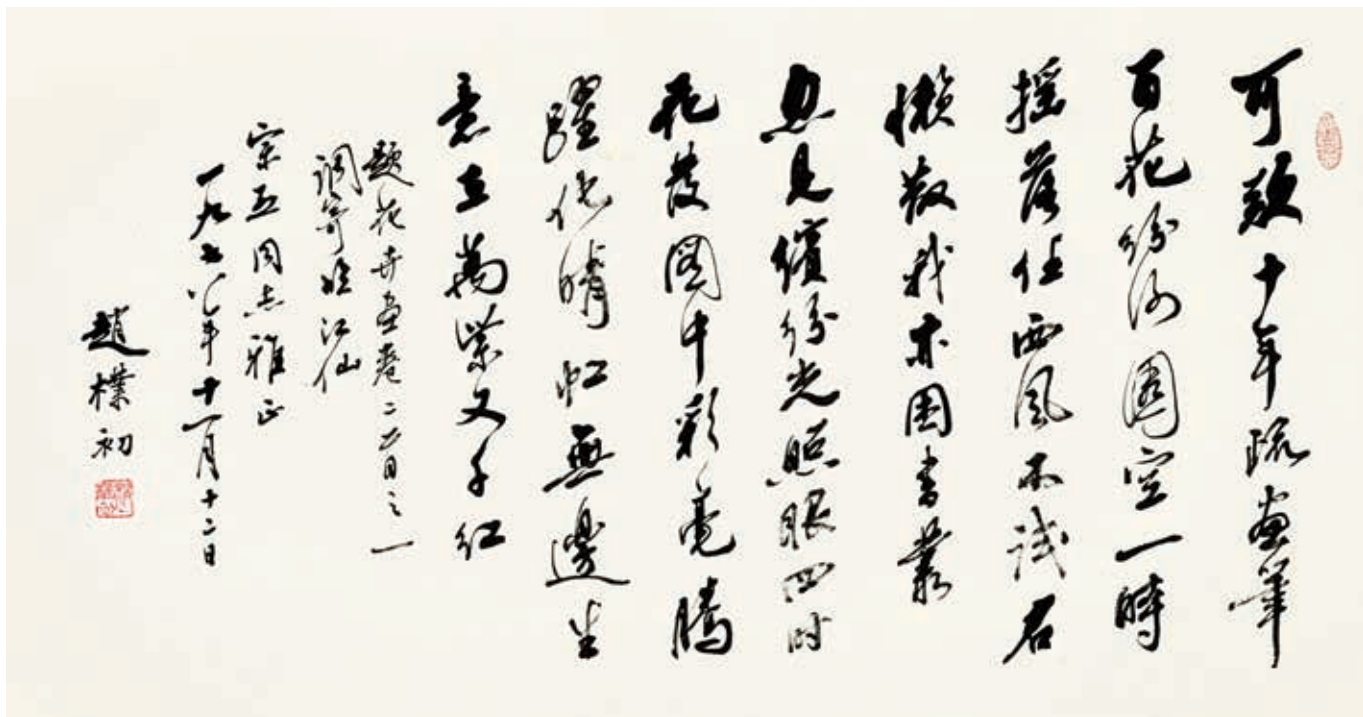 可歎十年疏畫筆
百花紛謝園空一時
搖落任西風不譏君
懶散我亦困書叢
忽見繽紛光照眼四時
花發圖中彩毫騰
躍化晴虹無邊生
意在萬紫又千紅
題花卉畫卷二首之一
調寄臨江仙
宗五同志雅正
一九七八年十一月十二日
趙樸初